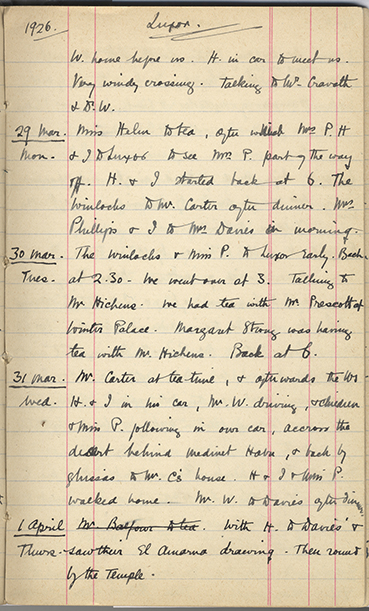 1926. Luxor.
W. home before us. H. in car to meet us.
Very windy crossing. Talking to Mr Cravath
& Dr. W.
29 Mar. Miss Helen to tea, after which Mrs P. H
Mon. & I to Luxor to see Mrs P. part of the way
off. H. & I started back at 6. The
Winlocks to Mr. Carter after dinner. Mrs
Phillips & I to Mrs Davies in morning.
30 Mar. The Winlocks & Miss P. to Luxor early. Back
Tues. at 2.30. We went over at 3. Talking to
Mr Hichens. We had tea with Mr Prescott at
Winter Palace. Margaret Strong was having
tea with Mr. Hichens. Back at 6.
31 Mar. Mr. Carter at tea time, & afterwards the Ws
Wed. H. & I in his car, Mr. W. driving, & children
& Miss P. following in own car, accross the
desert behind Medinet Habu, & back by
to Mr. C's house. H & I & Miss P.
walked home. Mr. W. to Davies after dinner.
1 April Mr. Balfour to tea. With H. to Davies' &
Thurs. saw their El Amarna drawing. Then round
by the Temple.